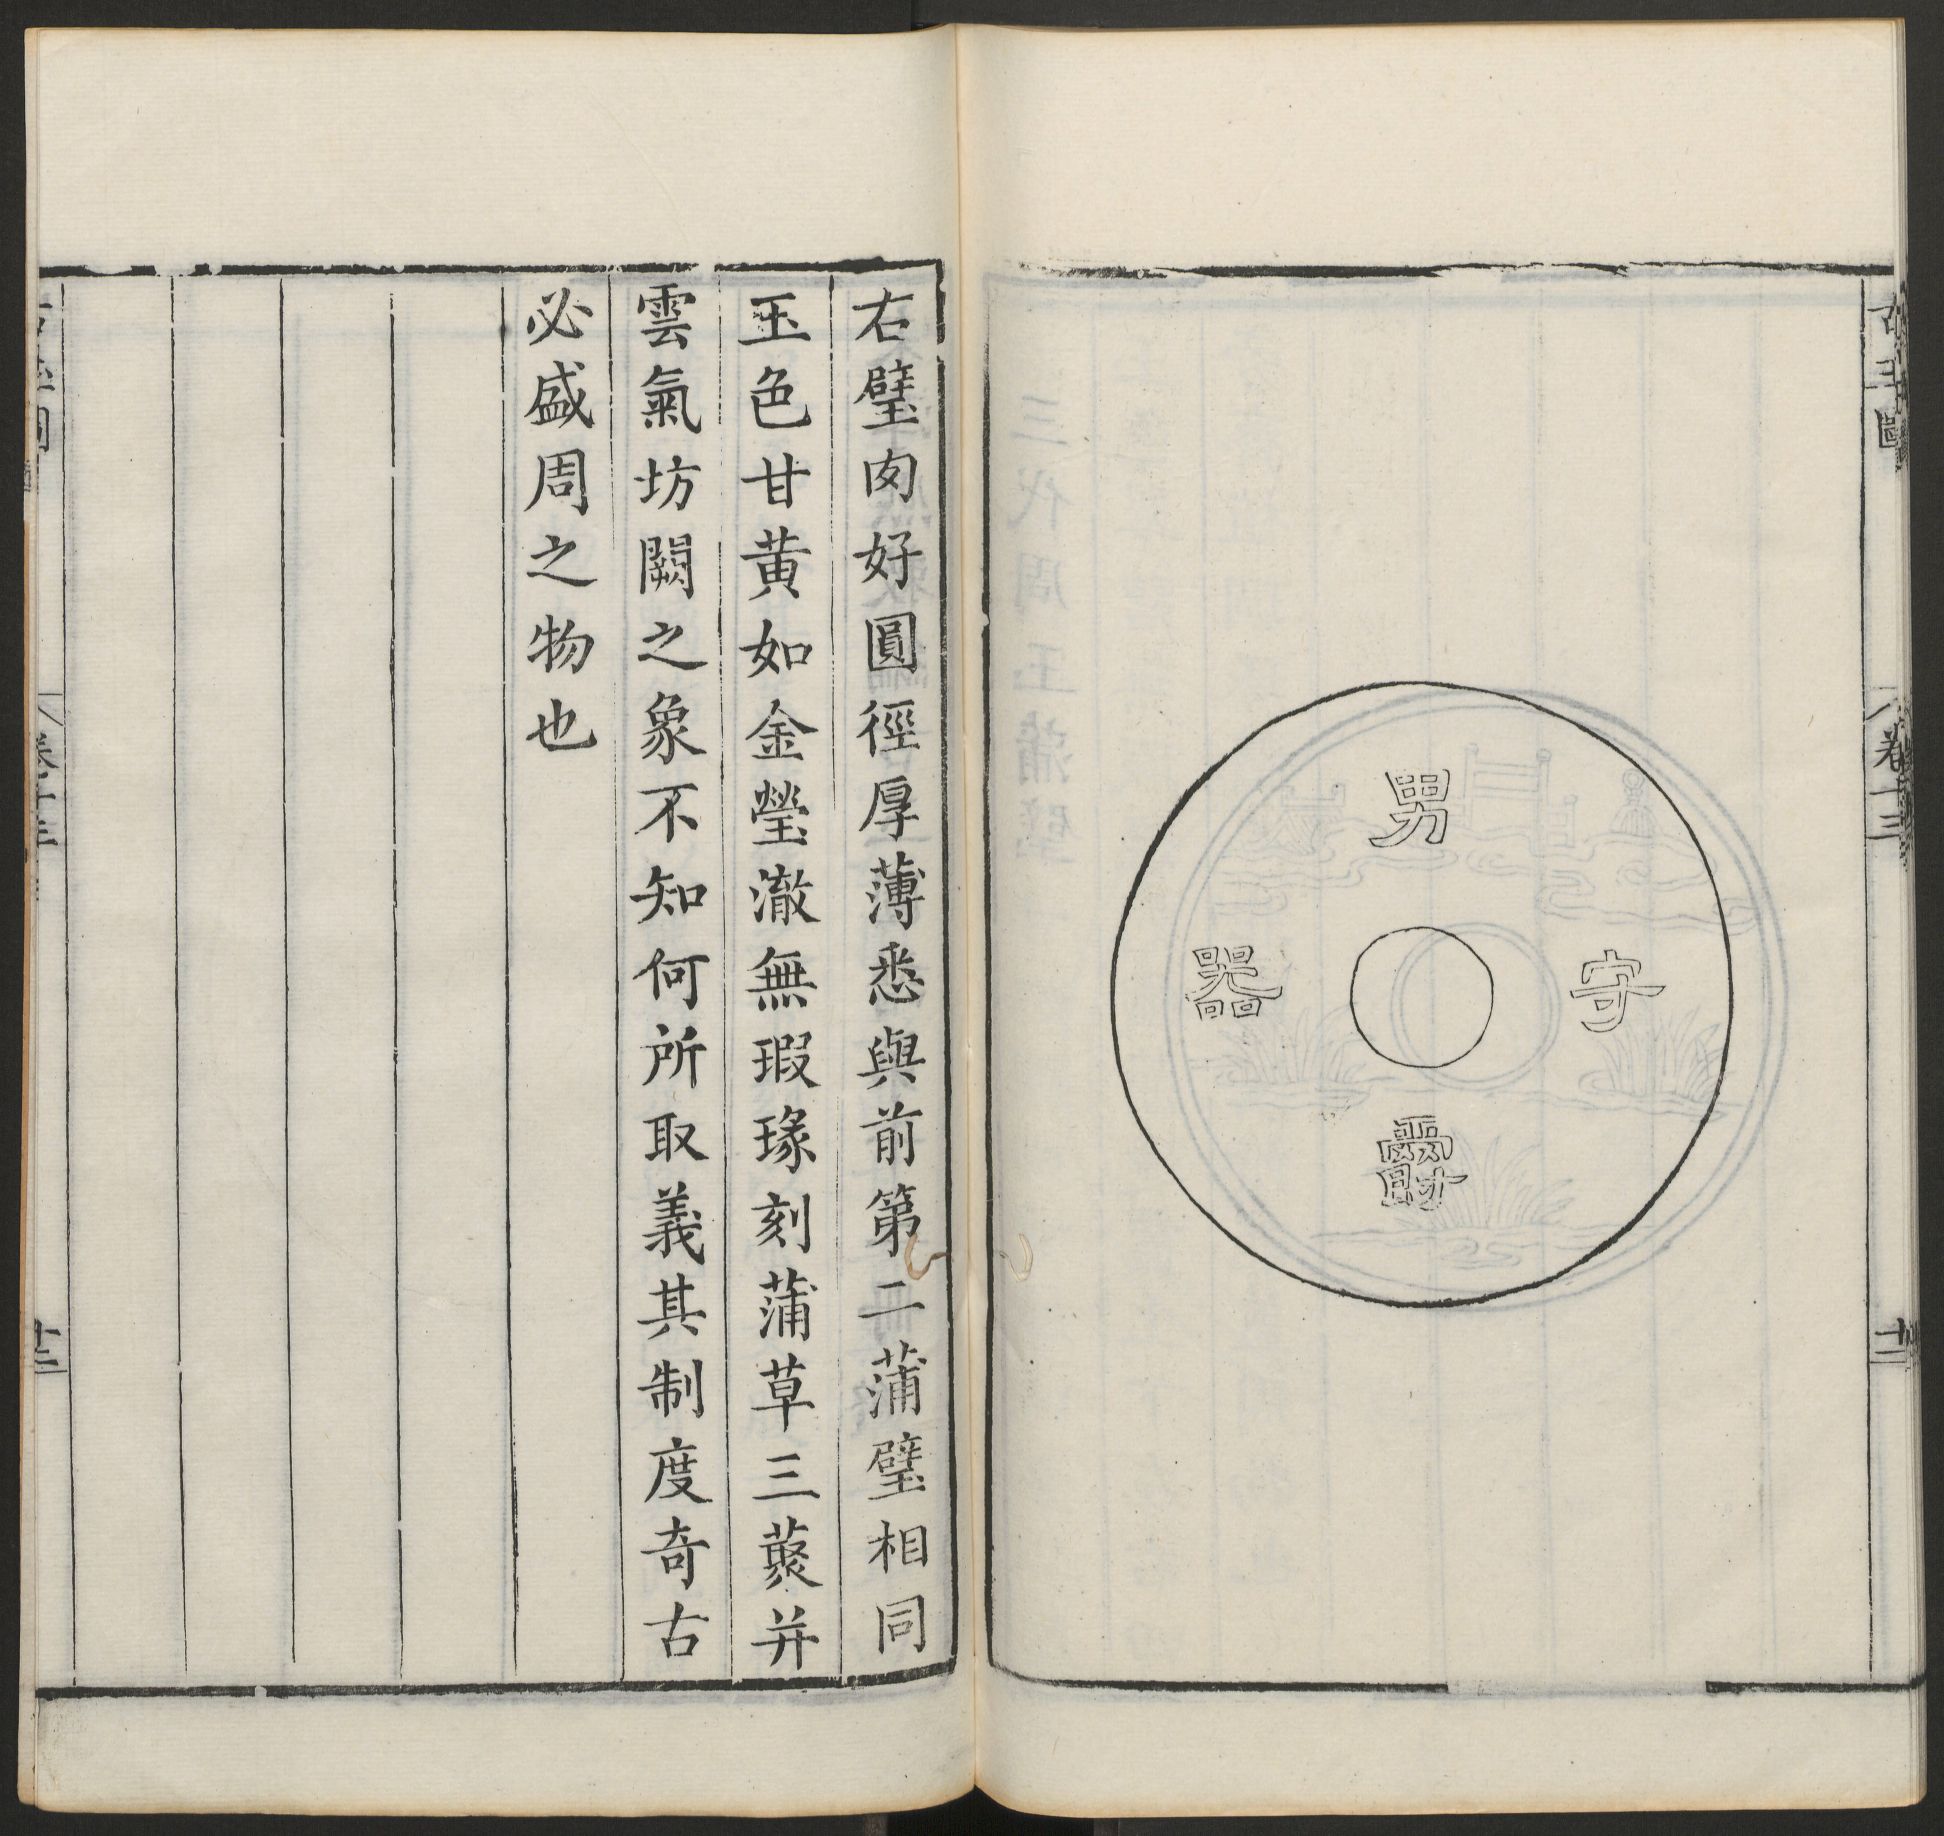 古玉圖
卷十三
十二
男
守
器
右璧肉好圓徑厚薄悉與前第二蒲璧相同
玉色甘黃如金瑩澈無瑕瑑刻蒲草三藂并
雲氣坊闕之象不知何所取義其制度奇古
必盛周之物也